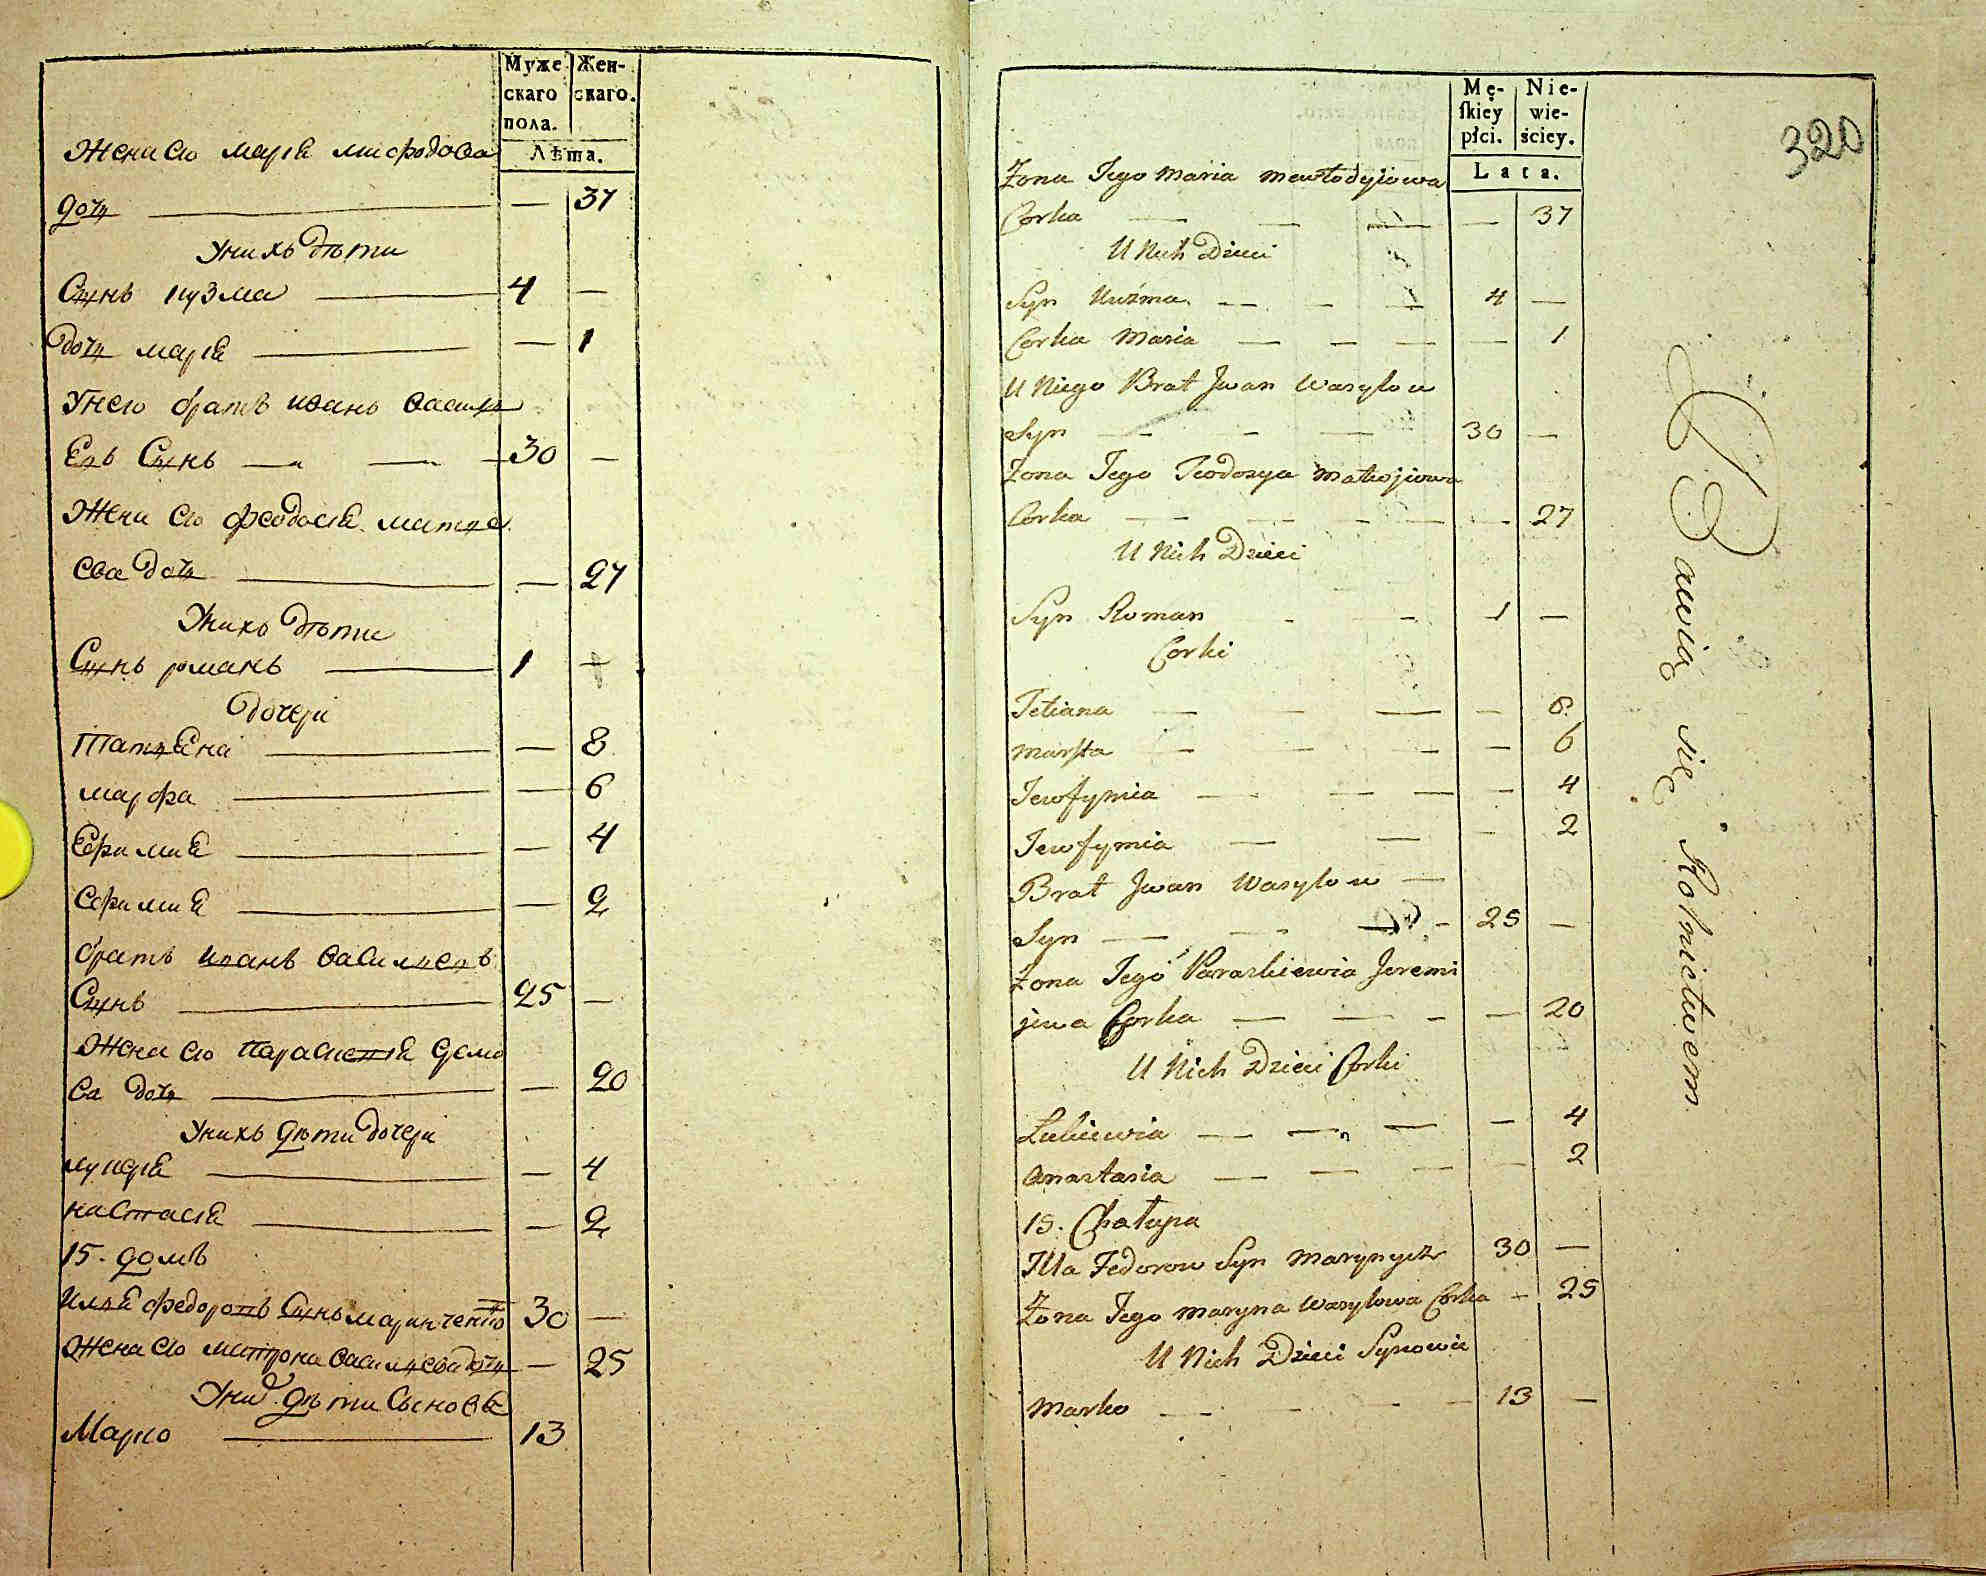 Муже
скаго
пола.
Жен-
скаго.
Лѣта.
Жена его Марія
дочь — — 37
У нихъ дѣти
Сынъ Кузма — 4 —
дочь марія — — 1
У него братъ иванъ василь
евъ Сынъ — — 30 —
Жена его феодосія матве
ева дочь — — 27
У нихъ дѣти
Сынъ романъ — 1 —
дочери
татіяна — — 8
марфа — — 6
Ефимия — — 4
Ефимия — — 2
братъ иванъ васильевъ
Сынъ — 25 —
Жена его параскевія
ва дочь — — 20
У нихъ дѣти дочери
лукерія — — 4
настасія — — 2
15. домъ
Илья федоровъ Сынъ маринченко 30 —
Жена его матрона васильева дочь — 25
У нихъ дѣти Сыновья
Марко — 13
Mę-
ſkiey
płci.
Nie-
wie-
ściey.
Lata.
320
Żona Jego Maria Mewłodyiowa
Corka — — — — 37
U Nich Dzieci
Syn Kuźma — — — 4 —
Corka Maria — — — — 1
U Niego Brat Jwan Wasylow
Syn — — — 30 —
Żona Jego Teodosya Matwijowa
Corka — — — — — 27
U Nich Dzieci
Syn Roman — — 1 —
Corki
Tetiana — — — — 8
Marfta — — — — 6
Jewfymia — — — — 4
Jewfymia — — — 2
Brat Jwan Wasylow —
Syn — — — 25 —
Żona Jego Paraskiewia Jeremi
jewa Corka — — — — 20
U Nich Dzieci Corki
Łukiewia — — — — 4
Anastasia — — — — 2
15. Chałupa
Illa Fedorow Syn Marynycz 30 —
Żona Jego Maryna Wasylowa Corka — 25
U Nich Dzieci Synowie
Marko — — — — 13 —
Bawią się Rolnictwem